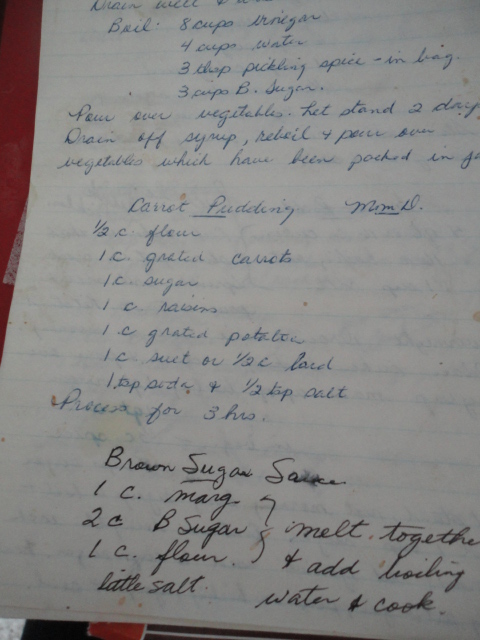 Drain well &
Boil: 8 cups vinegar
4 cups water
3 tbsp pickling spice - in bag.
3 cups B. Sugar.
Pour over vegetables. Let stand 2 day
Drain off syrup, reboil & pour over
vegetables which have been packed in ja
Carrot Pudding Mom D.
1/2 c. flour
1 c. grated carrots
1 c. sugar
1 c. raisins
1 c grated potatoe
1 c suet or 1/2 c lard
1 tsp soda & 1/2 tsp salt
Process for 3 hrs.
Brown Sugar Sauce
1 c. marg
2 c B Sugar } melt togethe
1 c. flour. & add boiling
little salt. water & cook.